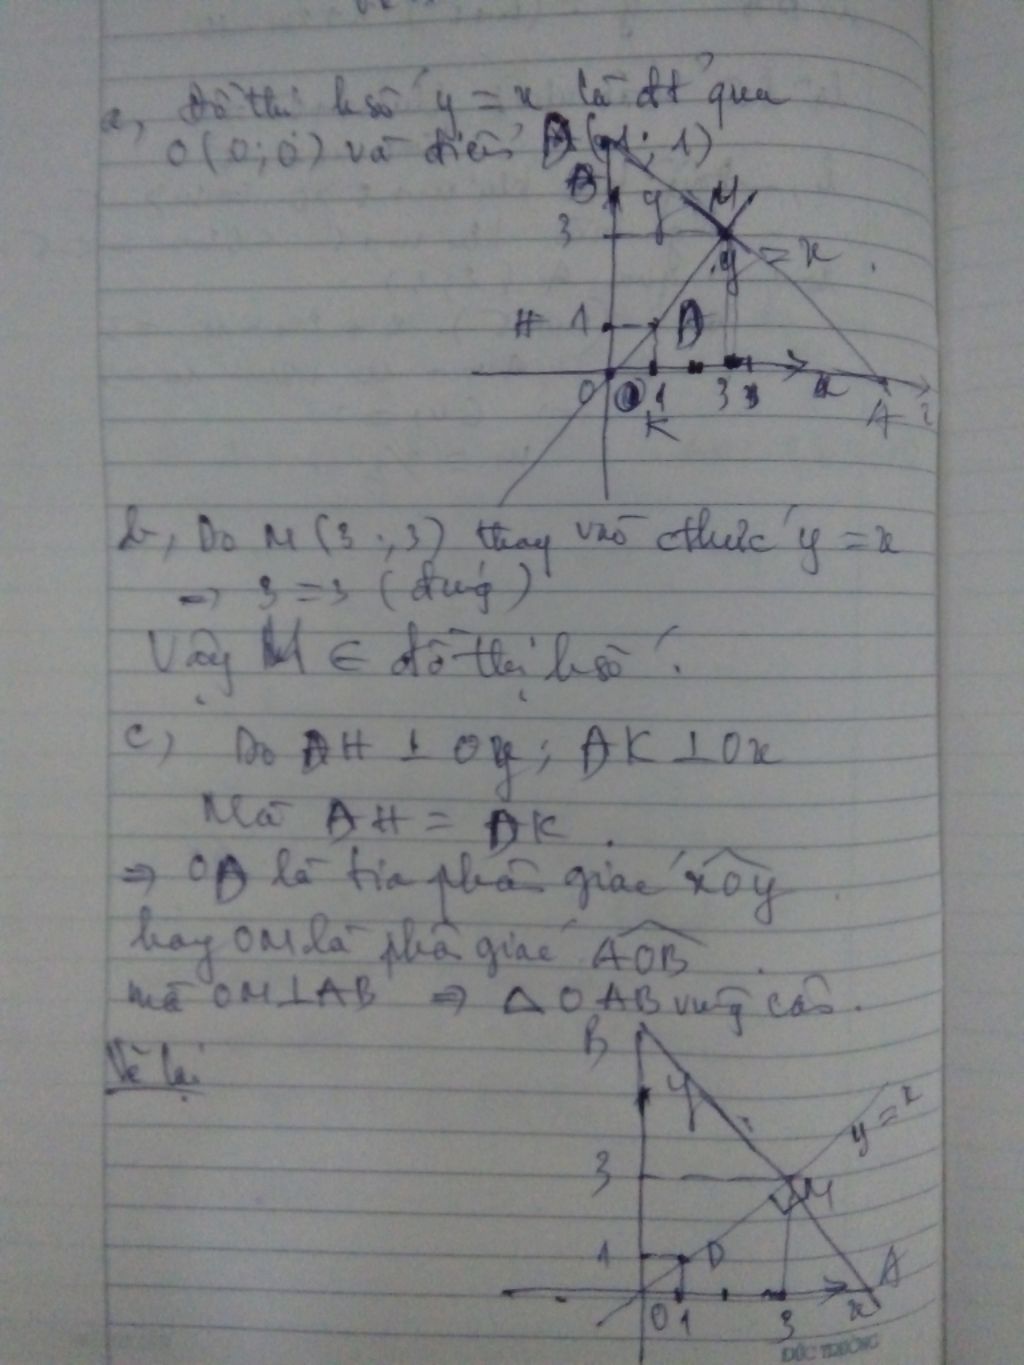 a, Đồ thị h số y = x là đt qua
O(0;0) và điểm D(1;1)
B
y M
3
y = x
H 1 D
O 1 3 x A
K
b, Do M(3;3) thay vào cthức y = x
=> 3 = 3 (đúng)
Vậy M ∈ đồ thị h số.
c, Do DH ⊥ Oy; DK ⊥ Ox
Mà DH = DK.
=> OD là tia phân giác xOy
hay OM là phân giác AOB.
mà OM ⊥ AB => Δ OAB vuông cân.
Vẽ lại
B
y
y = x
3 M
1 D A
O 1 3 x
ĐỨC TRƯỜNG